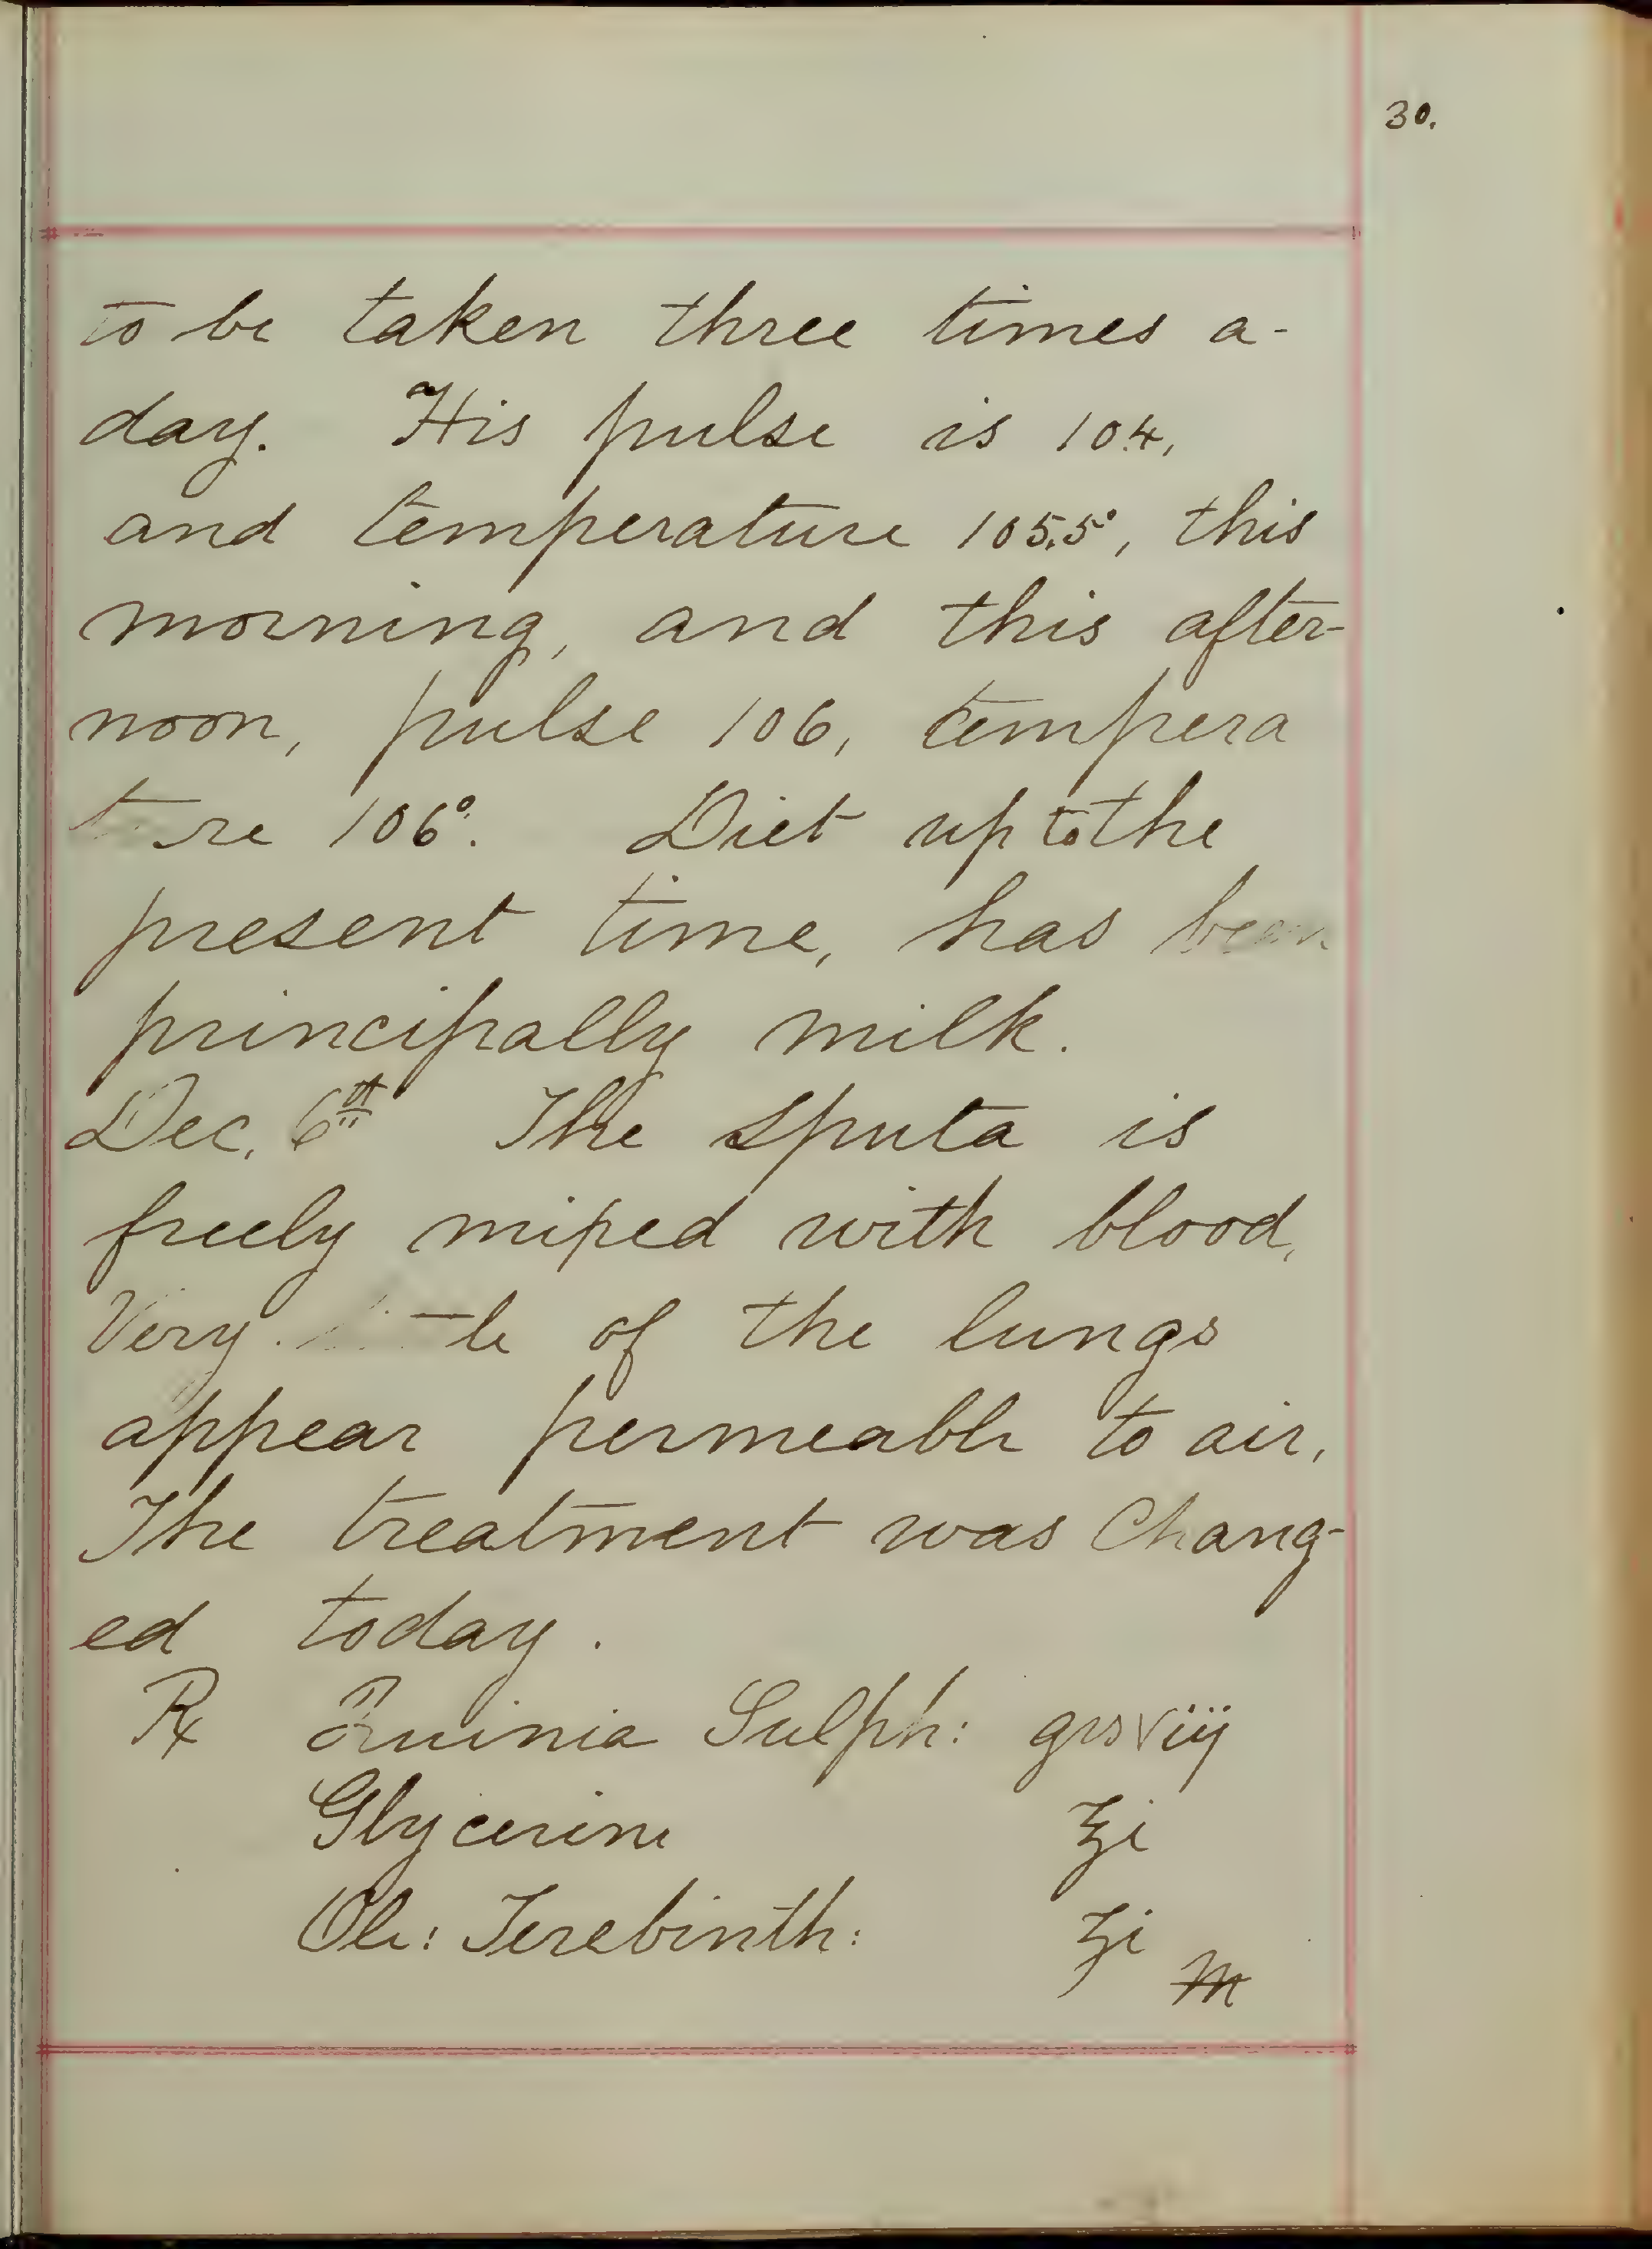 30.
to be taken three times a-
day. His pulse is 104,
and temperature 105.5°, this
morning, and this after-
noon, pulse 106, tempera
ture 106°. Diet up to the
present time, has been
principally milk.
Dec. 6th The sputa is
freely mixed with blood,
Very little of the lungs
appear permeable to air,
The treatment was Chang-
ed today.
℞ Quinia Sulph: grs viij
Glycerine ℥i
Ole: Terebinth: ʒi
M